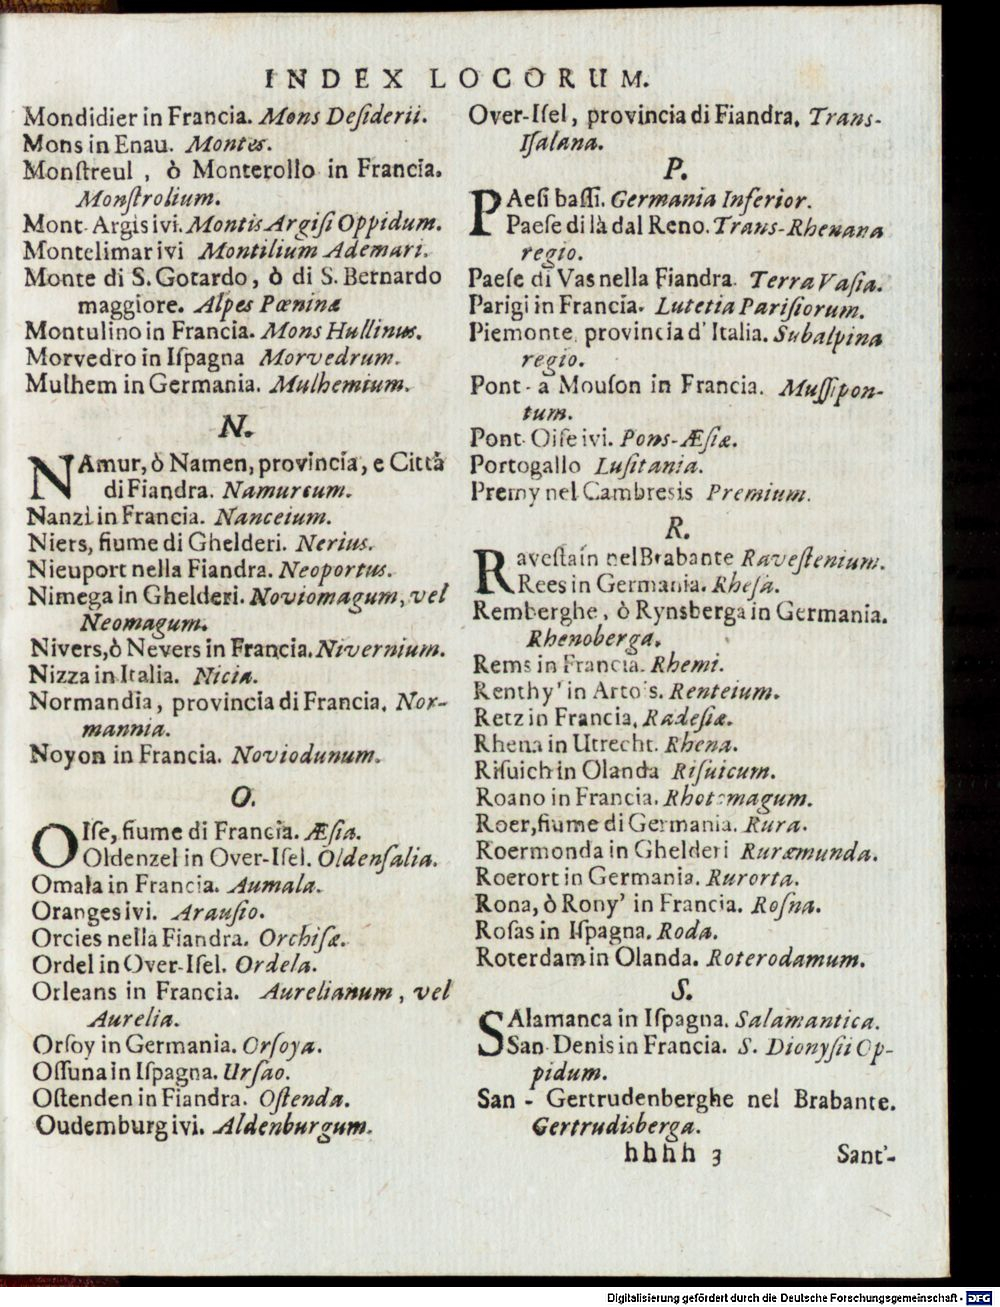 INDEX LOCORUM.
Mondidier in Francia. Mons Deſiderii.
Mons in Enau. Montes.
Monſtreul , ò Monterollo in Francia.
Monſtrolium.
Mont-Argis ivi. Montis Argiſi Oppidum.
Montelimar ivi Montilium Ademari.
Monte di S. Gotardo, ò di S. Bernardo
maggiore. Alpes Pœninæ
Montulino in Francia. Mons Hullinus.
Morvedro in Iſpagna Morvedrum.
Mulhem in Germania. Mulhemium.
N.
NAmur, ò Namen, provincia, e Città
di Fiandra. Namurcum.
Nanzi in Francia. Nanceium.
Niers, fiume di Ghelderi. Nerius.
Nieuport nella Fiandra. Neoportus.
Nimega in Ghelderi. Noviomagum, vel
Neomagum.
Nivers, ò Nevers in Francia. Nivernium.
Nizza in Italia. Nicia.
Normandia, provincia di Francia. Nor-
mannia.
Noyon in Francia. Noviodunum.
O.
OIſe, fiume di Francia. Æſia.
Oldenzel in Over-Iſel. Oldenſalia.
Omala in Francia. Aumala.
Oranges ivi. Arauſio.
Orcies nella Fiandra. Orchiſæ.
Ordel in Over-Iſel. Ordela.
Orleans in Francia. Aurelianum, vel
Aurelia.
Orſoy in Germania. Orſoya.
Oſſuna in Iſpagna. Urſao.
Oſtenden in Fiandra. Oſtenda.
Oudemburg ivi. Aldenburgum.
Over-Iſel, provincia di Fiandra. Trans-
Iſalana.
P.
PAeſi baſſi. Germania Inferior.
Paeſe di là dal Reno. Trans-Rhenana
regio.
Paeſe di Vas nella Fiandra. Terra Vaſia.
Parigi in Francia. Lutetia Pariſiorum.
Piemonte, provincia d' Italia. Subalpina
regio.
Pont-a Mouſon in Francia. Muſſipon-
tum.
Pont-Oiſe ivi. Pons-Æſiæ.
Portogallo Luſitania.
Premy nel Cambresis Premium.
R.
Raveſtain nel Brabante Raveſtenium.
Rees in Germania. Rheſa.
Remberghe, ò Rynsberga in Germania.
Rhenoberga.
Rems in Francia. Rhemi.
Renthy' in Artois. Renteium.
Retz in Francia. Radeſiæ.
Rhena in Utrecht. Rhena.
Riſuich in Olanda Riſuicum.
Roano in Francia. Rhotomagum.
Roer, fiume di Germania. Rura.
Roermonda in Ghelderi Ruræmunda.
Roerort in Germania. Rurorta.
Rona, ò Rony' in Francia. Roſna.
Roſas in Iſpagna. Roda.
Roterdam in Olanda. Roterodamum.
S.
SAlamanca in Iſpagna. Salamantica.
San-Denis in Francia. S. Dionyſii Op-
pidum.
San-Gertrudenberghe nel Brabante.
Gertrudisberga.
hhhh 3 Sant'-
Digitalisierung gefördert durch die Deutsche Forschungsgemeinschaft - DFG